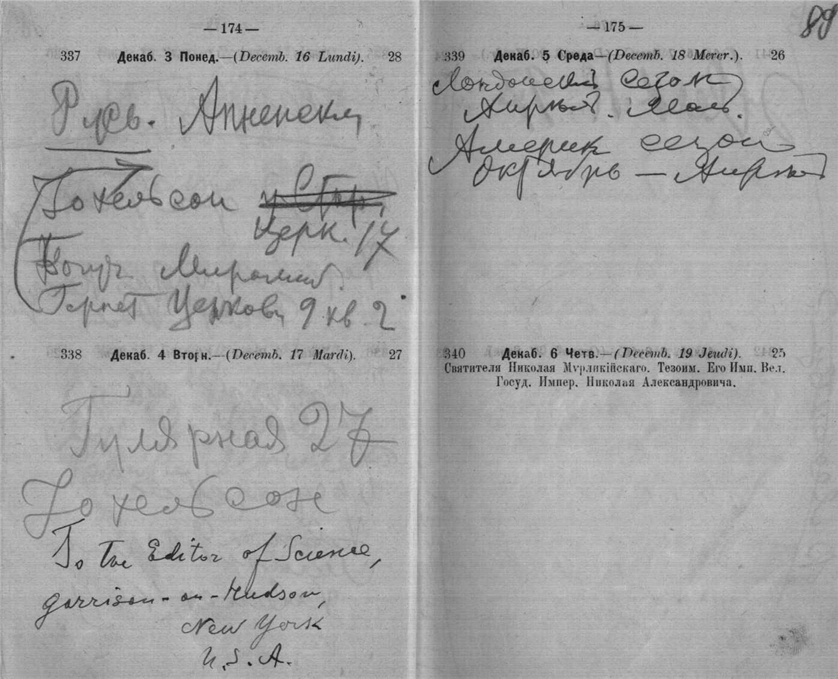 — 174 —
337 Декаб. 3 Понед.—(Decemb. 16 Lundi). 28
Русь. Анненск
Іохельсон
Церк. 17
Гернет Церковн 9 кв. 2
338 Декаб. 4 Вторн.—(Decemb. 17 Mardi). 27
Гулярная 27
Іохельсон
To the Editor of Science,
garrison-on-Hudson,
New York
U.S.A.
— 175 —
89
339 Декаб. 5 Среда—(Decemb. 18 Mercr.). 26
Лондонский сезон
Апрель. Май.
Америк сезон
Октябрь — Апрель
340 Декаб. 6 Четв.—(Decemb. 19 Jeudi). 25
Святителя Николая Мурликійскаго. Тезоим. Его Имп. Вел.
Госуд. Импер. Николая Александровича.